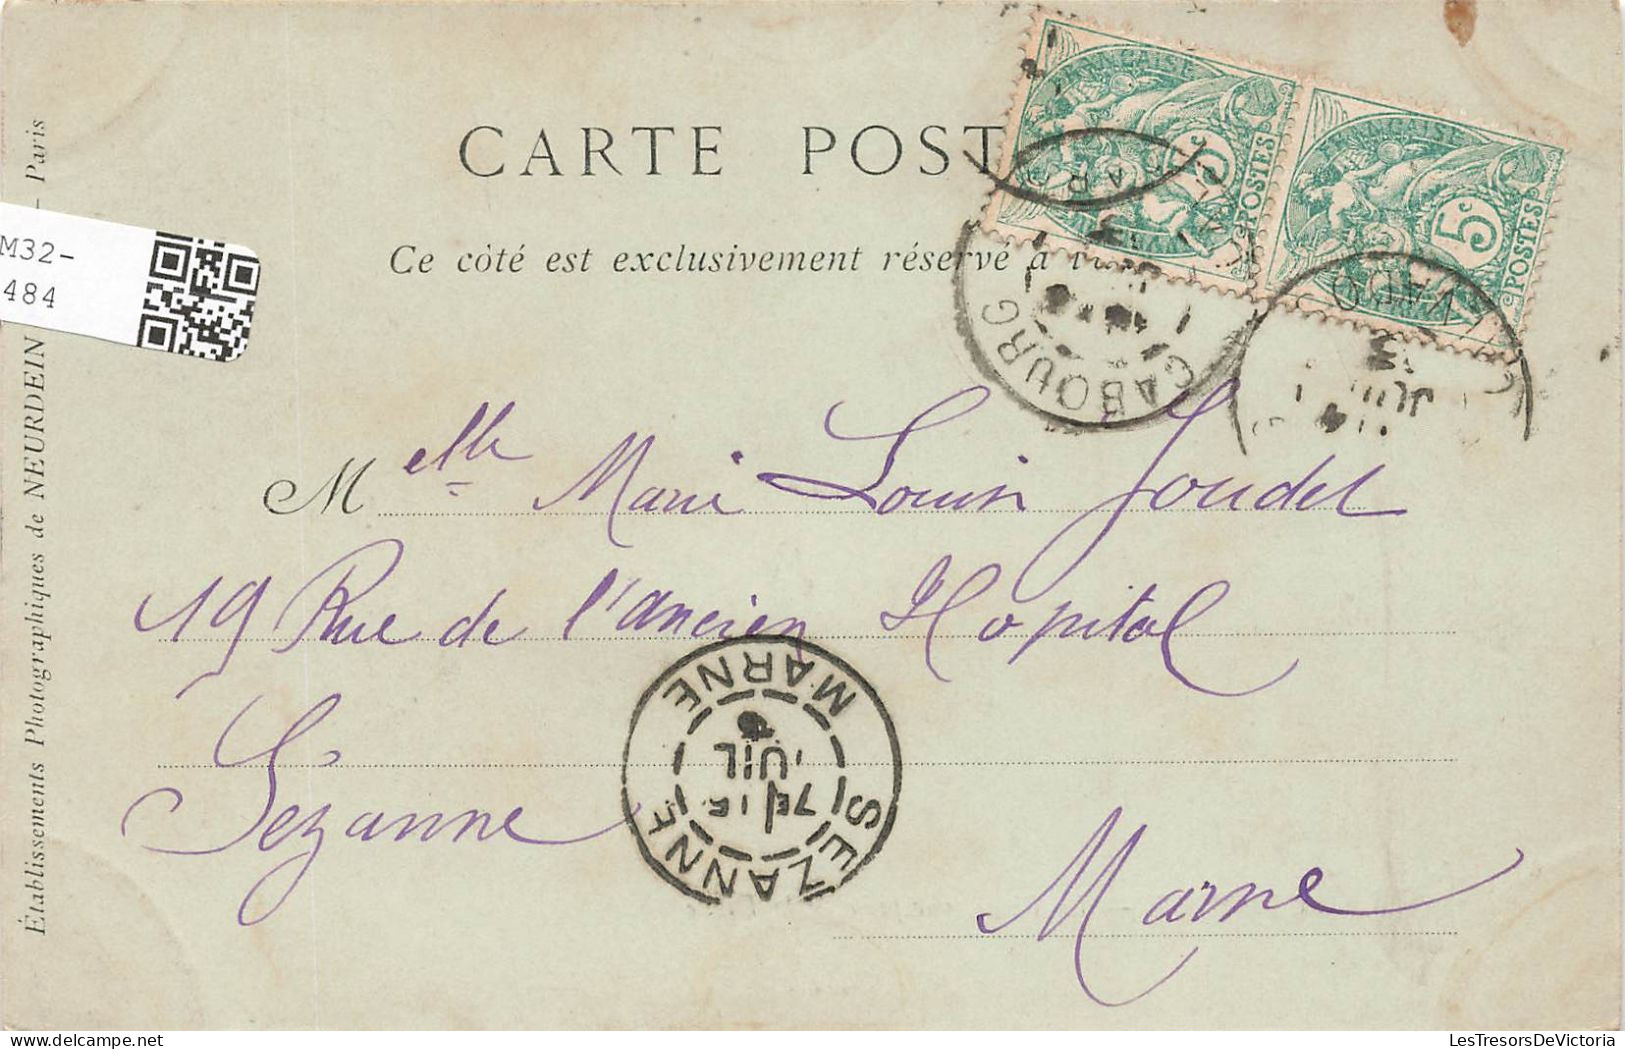 CARTE POST
Ce côté est exclusivement réservé à
FRANÇAISE
5c
POSTES
FRANÇAISE
5c
POSTES
CABOURG
JUIL
M32-
484
Établissements Photographiques de NEURDEIN - Paris
Melle Marie Louise Joudel
19 Rue de l'ancien Hopital
Sezanne
Marne
SEZANNE
MARNE
JUIL
LesTresorsDeVictoria